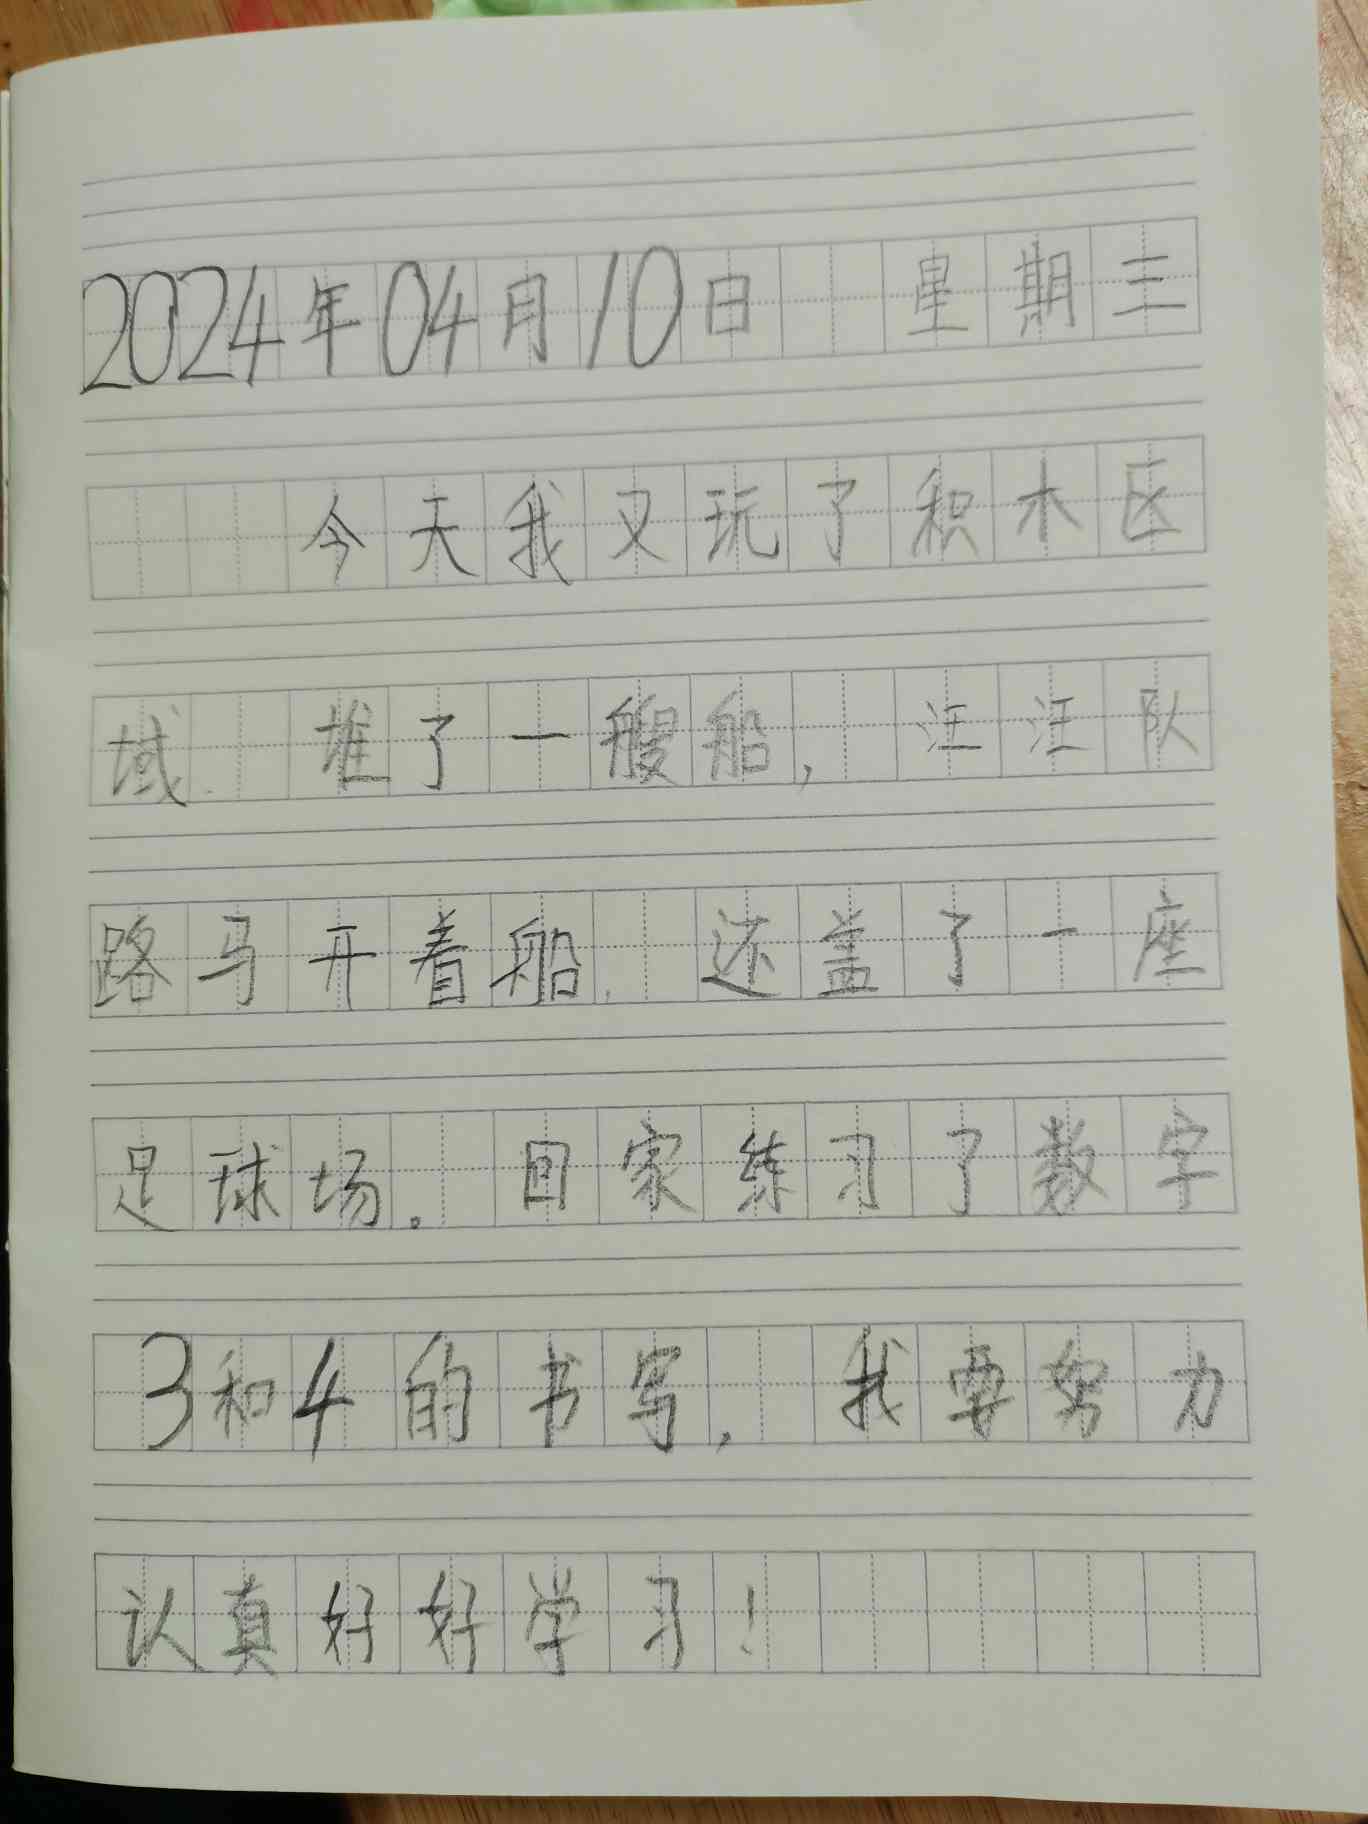 2024年04月10日 星期三
今天我又玩了积木区
域. 堆了一艘船, 汪汪队
路马开着船. 还盖了一座
足球场. 回家练习了数字
3和4的书写, 我要努力
认真好好学习!